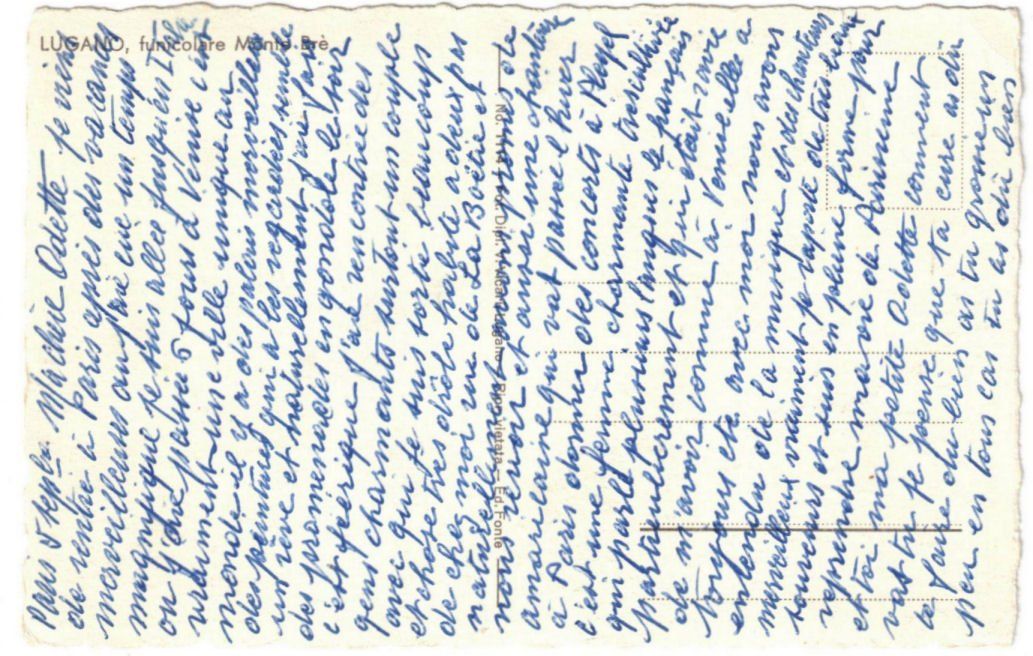 LUGANO, funicolare Monte Brè
No. 1114 Prot. Dipl. Viscar Lugano - Rip. vietata - Ed. Fonte
Paris 5 Sept. Ma chère Odette je viens
de rentrer à Paris après des vacances
merveilleuses ou j'ai eu un temps
magnifique je suis allée jusqu'en Italie
ou j'ai passé 5 jours à Venise c'est
vraiment une ville unique au
monde il y a des palais merveilleux
des peintures qui a les regarder semble
un rêve et naturellement j'ai fais
des promenades en gondole le soir
c'est féerique j'ai rencontré des
gens charmants surtout un couple
avec qui je suis sortie beaucoup
et chose très drôle habite a deux pas
de chez moi rue de La Boëtie et
naturellement nous sommes
nous revoir et aussi une chanteuse
américaine qui vat passer l'hiver
à Paris donner des concerts à Pleyel
c'est une femme charmante très cultivée
qui parle plusieurs langues le français
particulièrement et qui était ravie
de m'avoir connue à Venise elle a
toujours été avec moi nous avons
entendu de la musique et des chanteurs
merveilleux vraiment je rapporte de très beaux
souvenirs et suis en pleine forme pour
reprendre ma vie de Parisienne
et toi ma petite Odette comment
vat tu je pense que ta cure a dû
te faire du bien as tu grossi un
peu en tous cas tu as dû bien